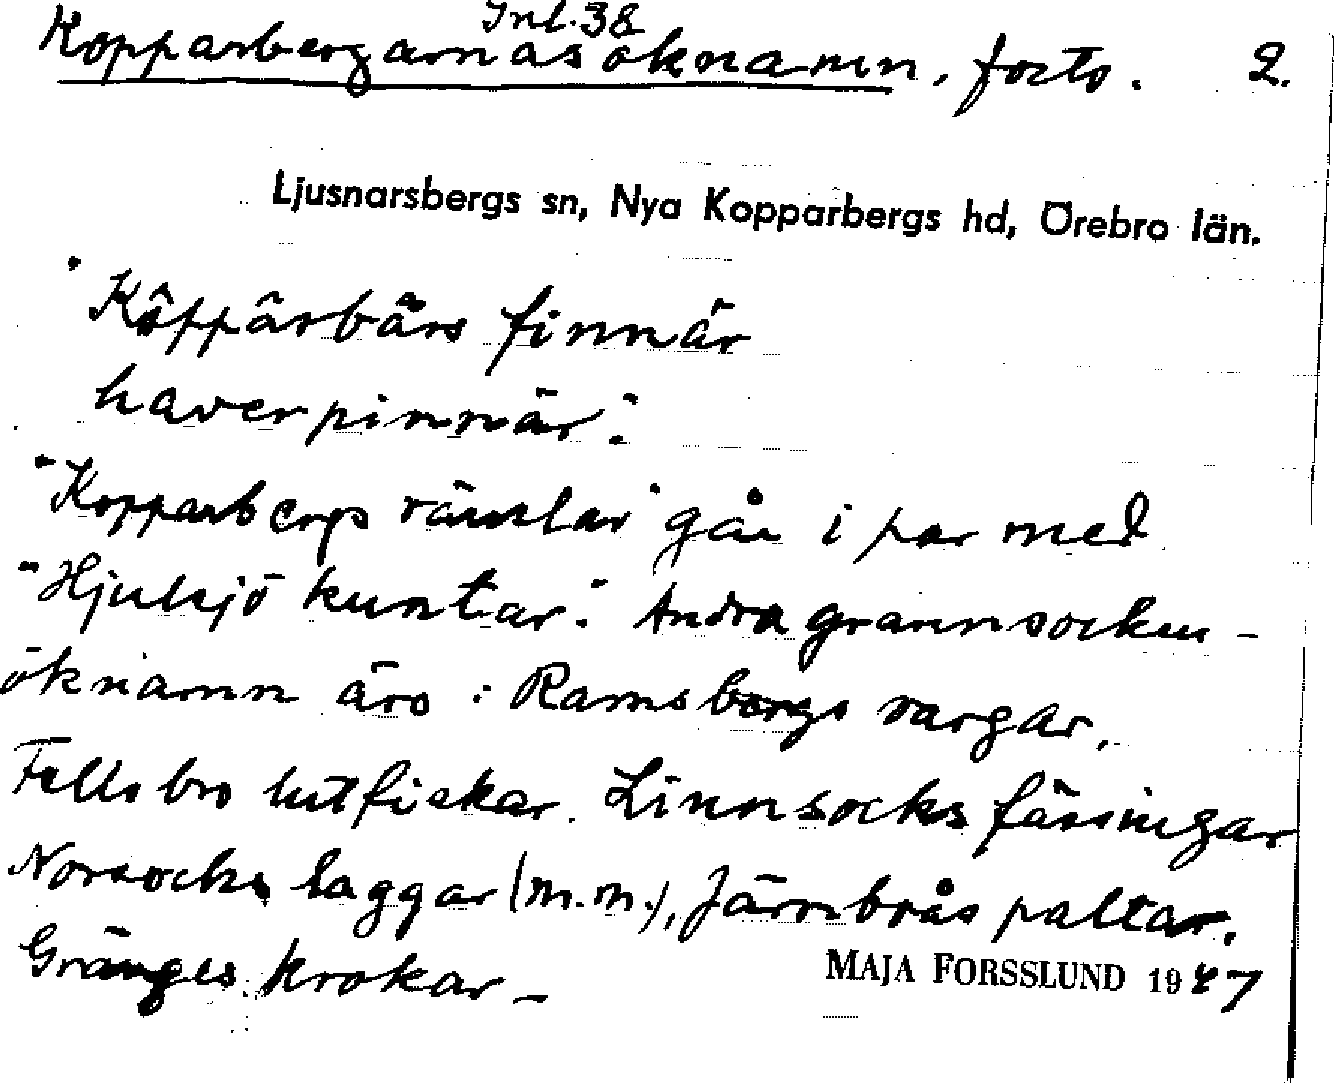 Inl. 38
Kopparbergarnas öknamn, forts. 2.
Ljusnarsbergs sn, Nya Kopparbergs hd, Örebro län.
"Kôppârbârs finnâr
haverpinnär".
"Kopparbergs räntlar" går i par med
"Hjulsjö kuntar". Andra grannsocken-
öknamn äro: Ramsbergs vargar,
Fellsbro lutfiskar. Linnsocks fässingar
Norsocks laggar (m.m.), Järnbrås paltar,
Gränges krokar –
MAJA FORSSLUND 1947